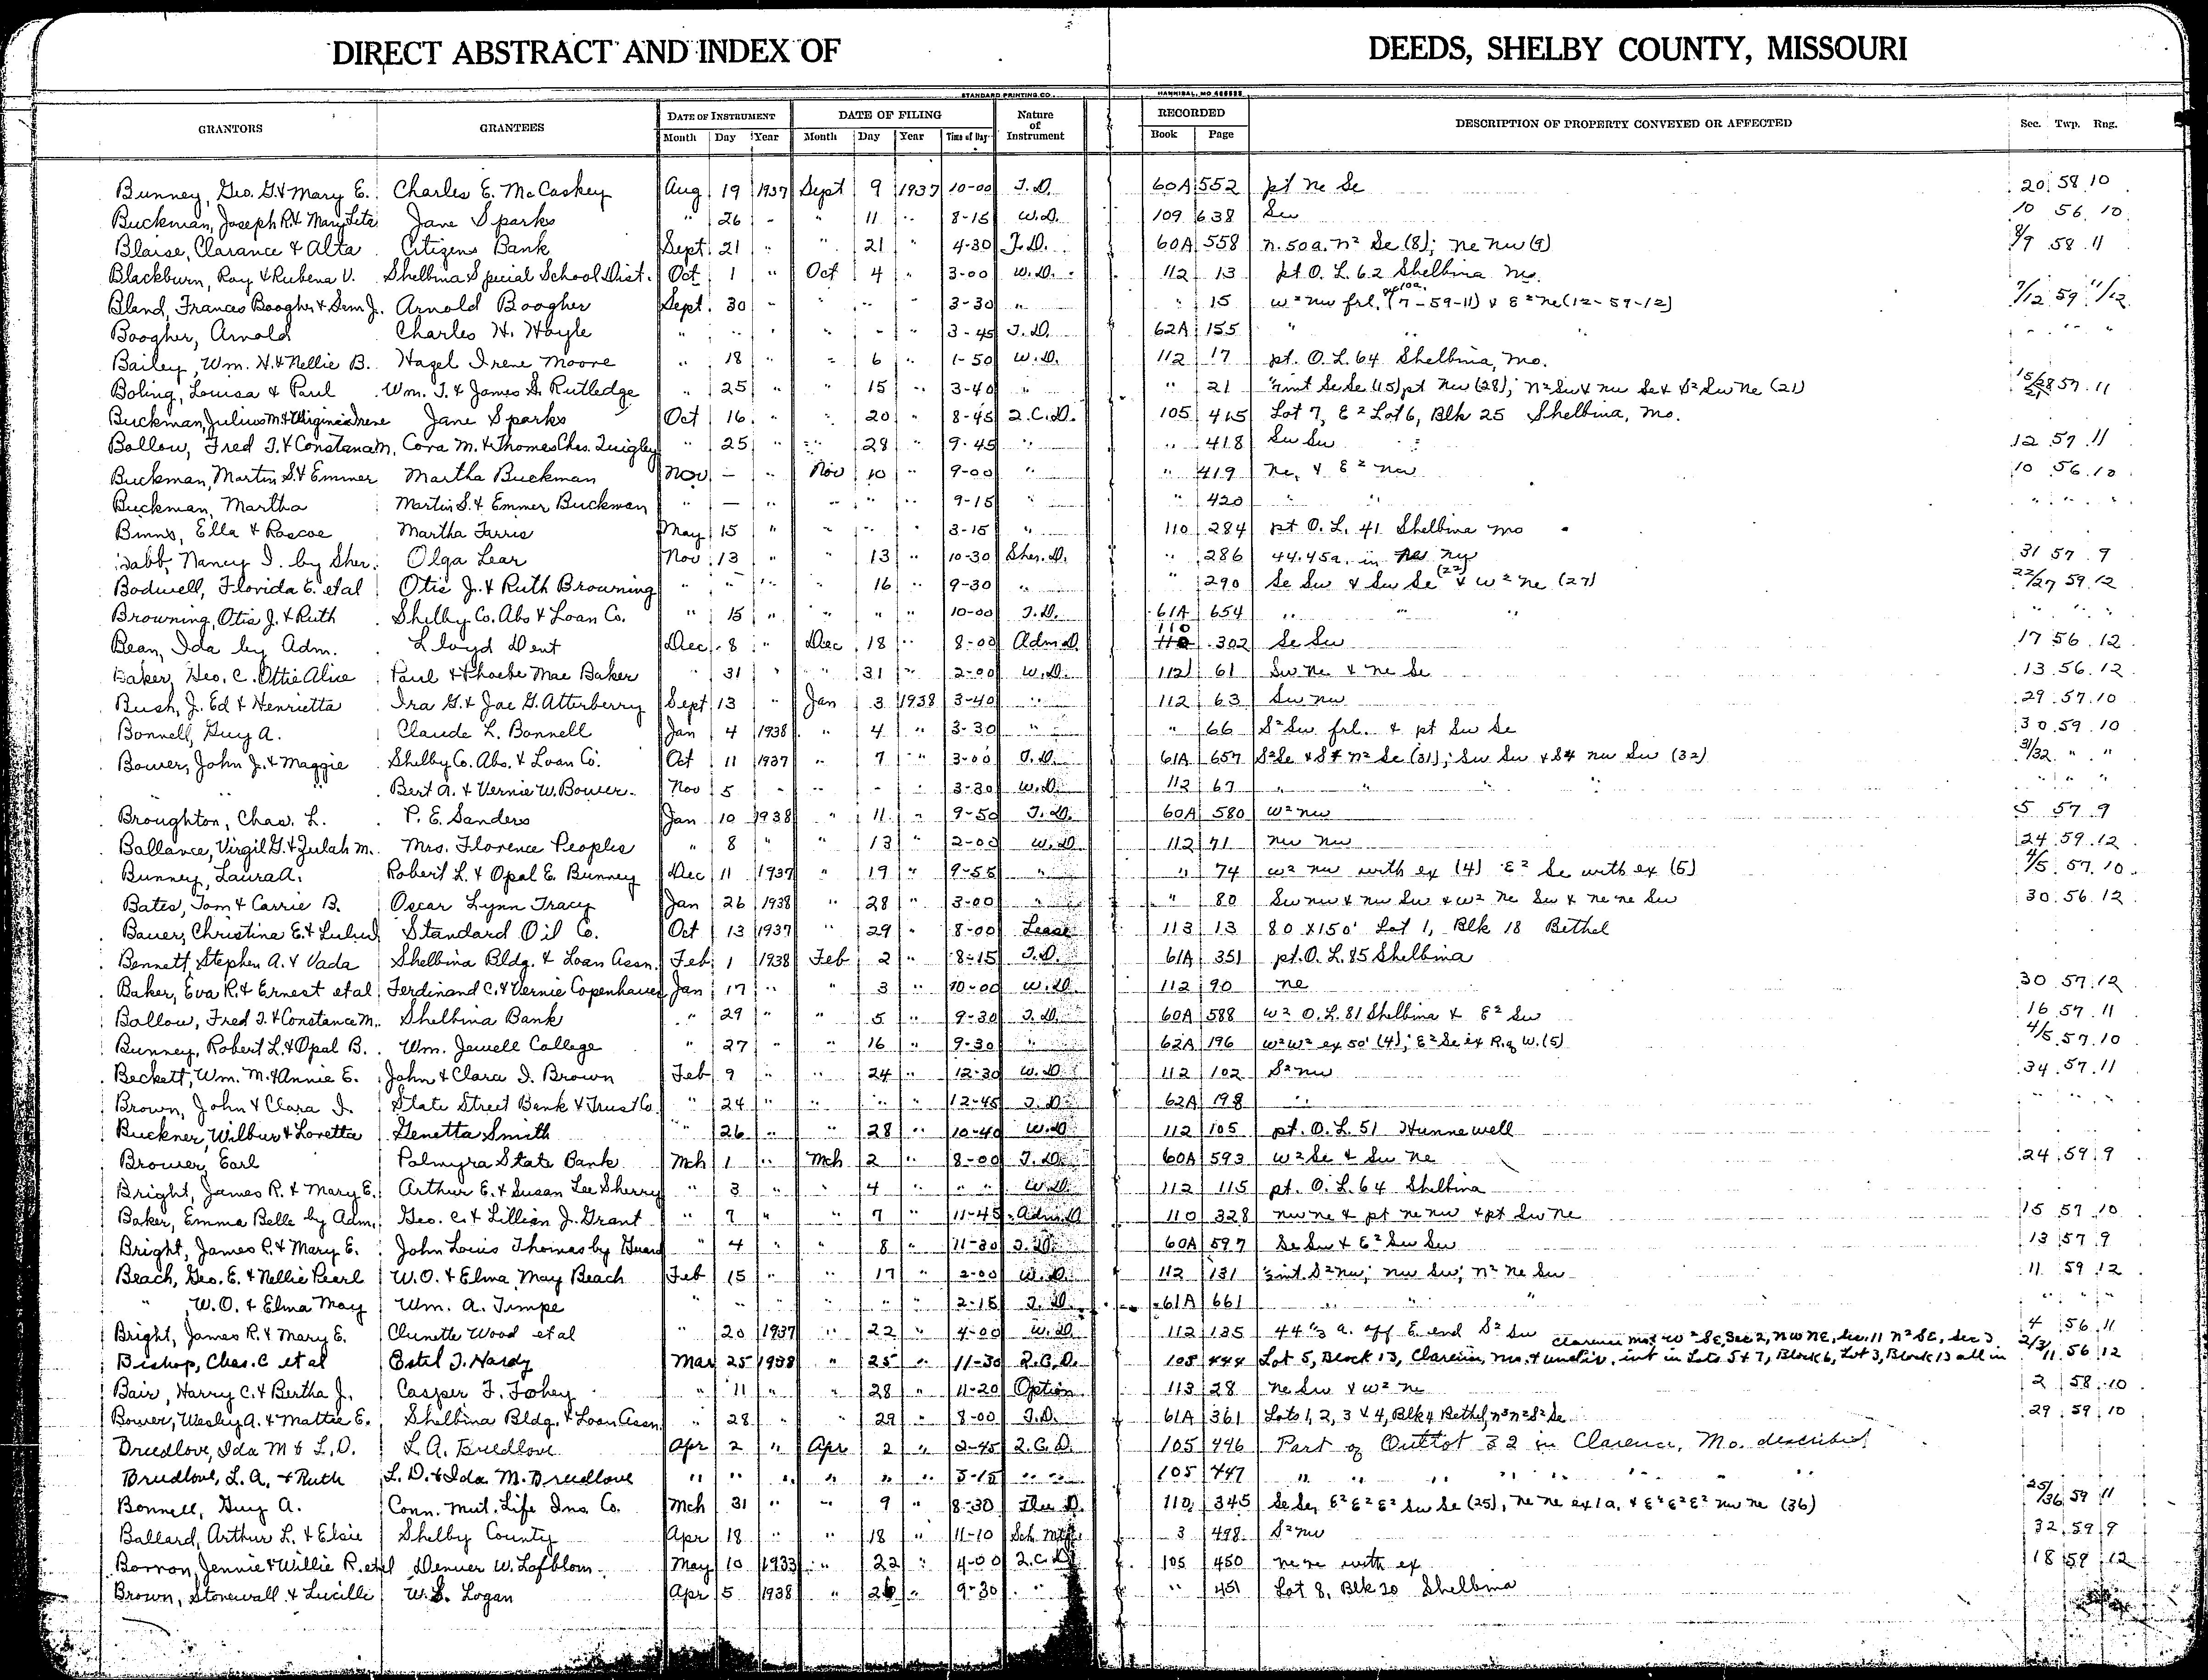 DIRECT ABSTRACT AND INDEX OF DEEDS, SHELBY COUNTY, MISSOURI
STANDARD PRINTING CO. HANNIBAL, MO
GRANTORS GRANTEES DATE OF INSTRUMENT DATE OF FILING Nature of Instrument RECORDED DESCRIPTION OF PROPERTY CONVEYED OR AFFECTED Sec. Twp. Rng.
Month Day Year Month Day Year Time of Day Book Page
Bunney, Geo. G. & Mary E. Charles E. McCaskey Aug 19 1937 Sept 9 1937 10-00 T.D. 60A 552 pt ne Se 20 58 10
Buckman, Joseph R. & Mary Leta Jane Sparks " 26 " " 11 " 8-15 W.D. 109 638 Sw 10 56 10
Blaise, Clarance & Alta Citizens Bank Sept. 21 " " 21 " 4-30 T.D. 60A 558 n. 50a. n² Se (8); ne nw (9) 8/9 58 11
Blackburn, Roy & Rubena V. Shelbina Special School Dist. Oct 1 " Oct 4 " 3-00 W.D. 112 13 pt O.L. 62 Shelbina Mo.
Bland, Frances Boogher & Sem J. Arnold Boogher Sept. 30 " " " " 3-30 " " 15 w² nw frl. (7-59-11) & E² ne (12-59-12) 7/12 59 11/12
Boogher, Arnold Charles H. Hayle " " " " " " 3-45 T.D. 62A 155 " " " " " "
Bailey, Wm. H. & Nellie B. Hazel Irene Moore " 18 " " 6 " 1-50 W.D. 112 17 pt. O.L. 64 Shelbina, Mo.
Boling, Louisa & Paul Wm. T. & James S. Rutledge " 25 " " 15 " 3-40 " " 21 int Se Se (15) pt nw (28); n² Sw & nw Se & S² Sw ne (21) 15/28 21 57 11
Buckman, Julius M. & Virginia Irene Jane Sparks Oct 16 " " 20 " 8-45 Q.C.D. 105 415 Lot 7, E² Lot 6, Blk 25 Shelbina, Mo.
Ballow, Fred T. & Constance M. Cora M. & Thomas Chas. Quigley " 25 " " 28 " 9-45 " " 418 Sw Sw 12 57 11
Buckman, Martin S. & Emmer Martha Buckman Nov — " Nov 10 " 9-00 " " 419 ne, & E² nw 10 56 10
Buckman, Martha Martin S. & Emmer Buckman " — " " " " 9-15 " 420 " " " " "
Binns, Ella & Roscoe Martha Farris May 15 " " " " 3-15 " 110 284 pt O.L. 41 Shelbina Mo
Babb, Nancy I. by Sher. Olga Lear Nov 13 " " 13 " 10-30 Sher. D. " 286 44.45a. in 31 57 9
Bodwell, Florida E. etal Otis J. & Ruth Browning " " " " 16 " 9-30 " " 290 Se Sw & Sw Se (22) & w² ne (27) 22/27 59 12
Browning, Otis J. & Ruth Shelby Co. Abs & Loan Co. " 15 " " " " 10-00 T.D. 61A 654 " " " " " "
Bean, Ida by Adm. Lloyd Dent Dec 8 " Dec 18 " 8-00 Adm D. 110 302 Se Sw 17 56 12
Baker, Geo. C. Ottie Alice Paul & Phoebe Mae Baker " 31 " " 31 " 2-00 W.D. 112 61 Sw ne & ne Se 13 56 12
Bush, J. Ed & Henrietta Ira G. & Jae G. Atterberry Sept 13 " Jan 3 1938 3-40 " 112 63 Sw nw 29 57 10
Bonnell, Guy A. Claude L. Bonnell Jan 4 1938 " 4 " 3-30 " " 66 S² Sw frl. & pt Sw Se 30 59 10
Bower, John J. & Maggie Shelby Co. Abs. & Loan Co. Oct 11 1937 " 7 " 3-00 T.D. 61A 657 S² Se & S4 n² Se (31); Sw Sw & S4 nw Sw (32) 31/32 " "
" " Bert A. & Vernie W. Bower Nov 5 " " " " 3-30 W.D. 112 67 " " " " " "
Broughton, Chas. L. P. E. Sanders Jan 10 1938 " 11 " 9-50 T.D. 60A 580 w² nw 5 57 9
Ballance, Virgil G. & Zulah M. Mrs. Florence Peoples " 8 " " 13 " 2-00 W.D. 112 71 nw nw 24 59 12
Bunney, Laura A. Robert L. & Opal E. Bunney Dec 11 1937 " 19 " 9-55 " " 74 w² nw with ex (4) E² Se with ex (5) 4/5 57 10
Bates, Tom & Carrie B. Oscar Lynn Tracy Jan 26 1938 " 28 " 3-00 " " 80 Sw nw & nw Sw & w² ne Sw & ne ne Sw 30 56 12
Bauer, Christine E. & Lulu Standard Oil Co. Oct 13 1937 " 29 " 8-00 Lease 113 13 80 X150' Lot 1, Blk 18 Bethel
Bennett, Stephen A. & Vada Shelbina Bldg. & Loan Assn. Feb 1 1938 Feb 2 " 8-15 T.D. 61A 351 pt. O.L. 85 Shelbina
Baker, Eva R. & Ernest etal Ferdinand C. & Vernie Copenhaver Jan 17 " " 3 " 10-00 W.D. 112 90 ne 30 57 12
Ballow, Fred T. & Constance M. Shelbina Bank " 29 " " 5 " 9-30 T.D. 60A 588 w² O.L. 81 Shelbina & E² Sw 16 57 11
Bunney, Robert L. & Opal B. Wm. Jewell College " 27 " " 16 " 9-30 " 62A 196 w² w² ex 50' (4); E² Se ex R. of W. (5) 4/5 57 10
Beckett, Wm. M. & Annie E. John & Clara I. Brown Feb 9 " " 24 " 12-30 W.D. 112 102 S² nw 34 57 11
Brown, John & Clara I. State Street Bank & Trust Co. " 24 " " " " 12-45 T.D. 62A 198 " " " "
Buckner, Wilbur & Loretta Genetta Smith " 26 " " 28 " 10-40 W.D. 112 105 pt. O.L. 51 Hunnewell
Brower, Earl Palmyra State Bank Mch 1 " Mch 2 " 8-00 T.D. 60A 593 w² Se & Sw ne 24 59 9
Bright, James R. & Mary E. Arthur E. & Susan Lee Sherry " 3 " " 4 " " " W.D. 112 115 pt. O.L. 64 Shelbina
Baker, Emma Belle by Adm. Geo. C. & Lillian J. Grant " 7 " " 7 " 11-45 Adm D 110 328 nw ne & pt ne nw & pt Sw ne 15 57 10
Bright, James R. & Mary E. John Louis Thomas by Guard " 4 " " 8 " 11-30 T.D. 60A 597 Se Sw & E² Sw Sw 13 57 9
Beach, Geo. E. & Nellie Pearl W.O. & Elma May Beach Feb 15 " " 17 " 2-00 W.D. 112 131 int. S² nw; nw Sw; n² ne Sw 11 59 12
" W.O. & Elma May Wm. A. Timpe " " " " " " 2-15 T.D. 61A 661 " " " " " "
Bright, James R. & Mary E. Clunette Wood etal " 20 1937 " 22 " 4-00 W.D. 112 135 44 1/3 a. off E. end S² Sw 4 56 11
Clarence Mo & w² SE, Sec 2, NW NE, Sec. 11 N² SE, Sec 3
Bishop, Chas. C etal Estel T. Hardy Mar 25 1938 " 25 " 11-30 Q.C.D. 105 444 Lot 5, Block 13, Clarence, Mo. & undiv. int in Lots 5 & 7, Block 6, Lot 3, Block 13 all in 2/3/11 56 12
Bair, Harry C. & Bertha J. Casper F. Fohey " 11 " " 28 " 11-20 Option 113 28 ne Sw & w² ne 2 58 10
Bower, Wesley A. & Mattie E. Shelbina Bldg. & Loan Assn " 28 " " 29 " 8-00 T.D. 61A 361 Lots 1, 2, 3 & 4, Blk 4 Bethel, n² S² Se 29 59 10
Breedlove, Ida M & L.D. L.A. Breedlove Apr 2 " Apr 2 " 2-45 Q.C.D. 105 446 Part of Outlot 32 in Clarence, Mo. described
Breedlove, L.A. & Ruth L.D. & Ida M. Breedlove " " " " " " 3-15 " " 105 447 " " " " " " " "
Bonnell, Guy A. Conn. Mut. Life Ins. Co. Mch 31 " " 9 " 8-30 D. 110 345 Se Se, E² E² E² Sw Se (25), ne ne ex 1a. & E² E² E² nw ne (36) 25/36 59 11
Ballard, Arthur L. & Elsie Shelby County Apr 18 " " 18 " 11-10 Sch. Mtg. 3 498 S² nw 32 59 9
Borron, Jennie & Willie R. etal Denver W. Lofblom May 10 1933 " 22 " 4-00 Q.C.D. 105 450 ne ne with ex 18 59 12
Brown, Stonewall & Lucille W.S. Logan Apr 5 1938 " 26 " 9-30 " " 451 Lot 8, Blk 20 Shelbina